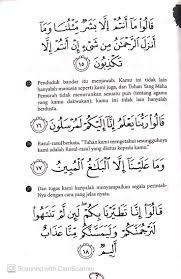 قَالُوا مَا أَنتُمْ إِلَّا بَشَرٌ مِّثْلُنَا وَمَا
أَنزَلَ الرَّحْمَٰنُ مِن شَيْءٍ إِنْ أَنتُمْ إِلَّا
تَكْذِبُونَ ١٥
Penduduk bandar itu menjawab: Kamu ini tidak lain
hanyalah manusia seperti kami juga, dan Tuhan Yang Maha
Pemurah tidak menurunkan sesuatu pun (tentang agama
yang kamu dakwakan); kamu ini tidak lain hanyalah
berdusta.
قَالُوا رَبُّنَا يَعْلَمُ إِنَّا إِلَيْكُمْ لَمُرْسَلُونَ ١٦
Rasul-rasul berkata: Tuhan Kami mengetahui sesungguhnya
kami adalah Rasul-rasul yang diutus kepada kamu.
وَمَا عَلَيْنَا إِلَّا الْبَلَاغُ الْمُبِينُ ١٧
Dan tugas kami hanyalah menyampaikan segala perintah-
Nya dengan cara yang jelas nyata.
قَالُوا إِنَّا تَطَيَّرْنَا بِكُمْ لَئِن لَّمْ تَنتَهُوا
لَنَرْجُمَنَّكُمْ وَلَيَمَسَّنَّكُم مِّنَّا عَذَابٌ
أَلِيمٌ ١٨
Scanned with CamScanner